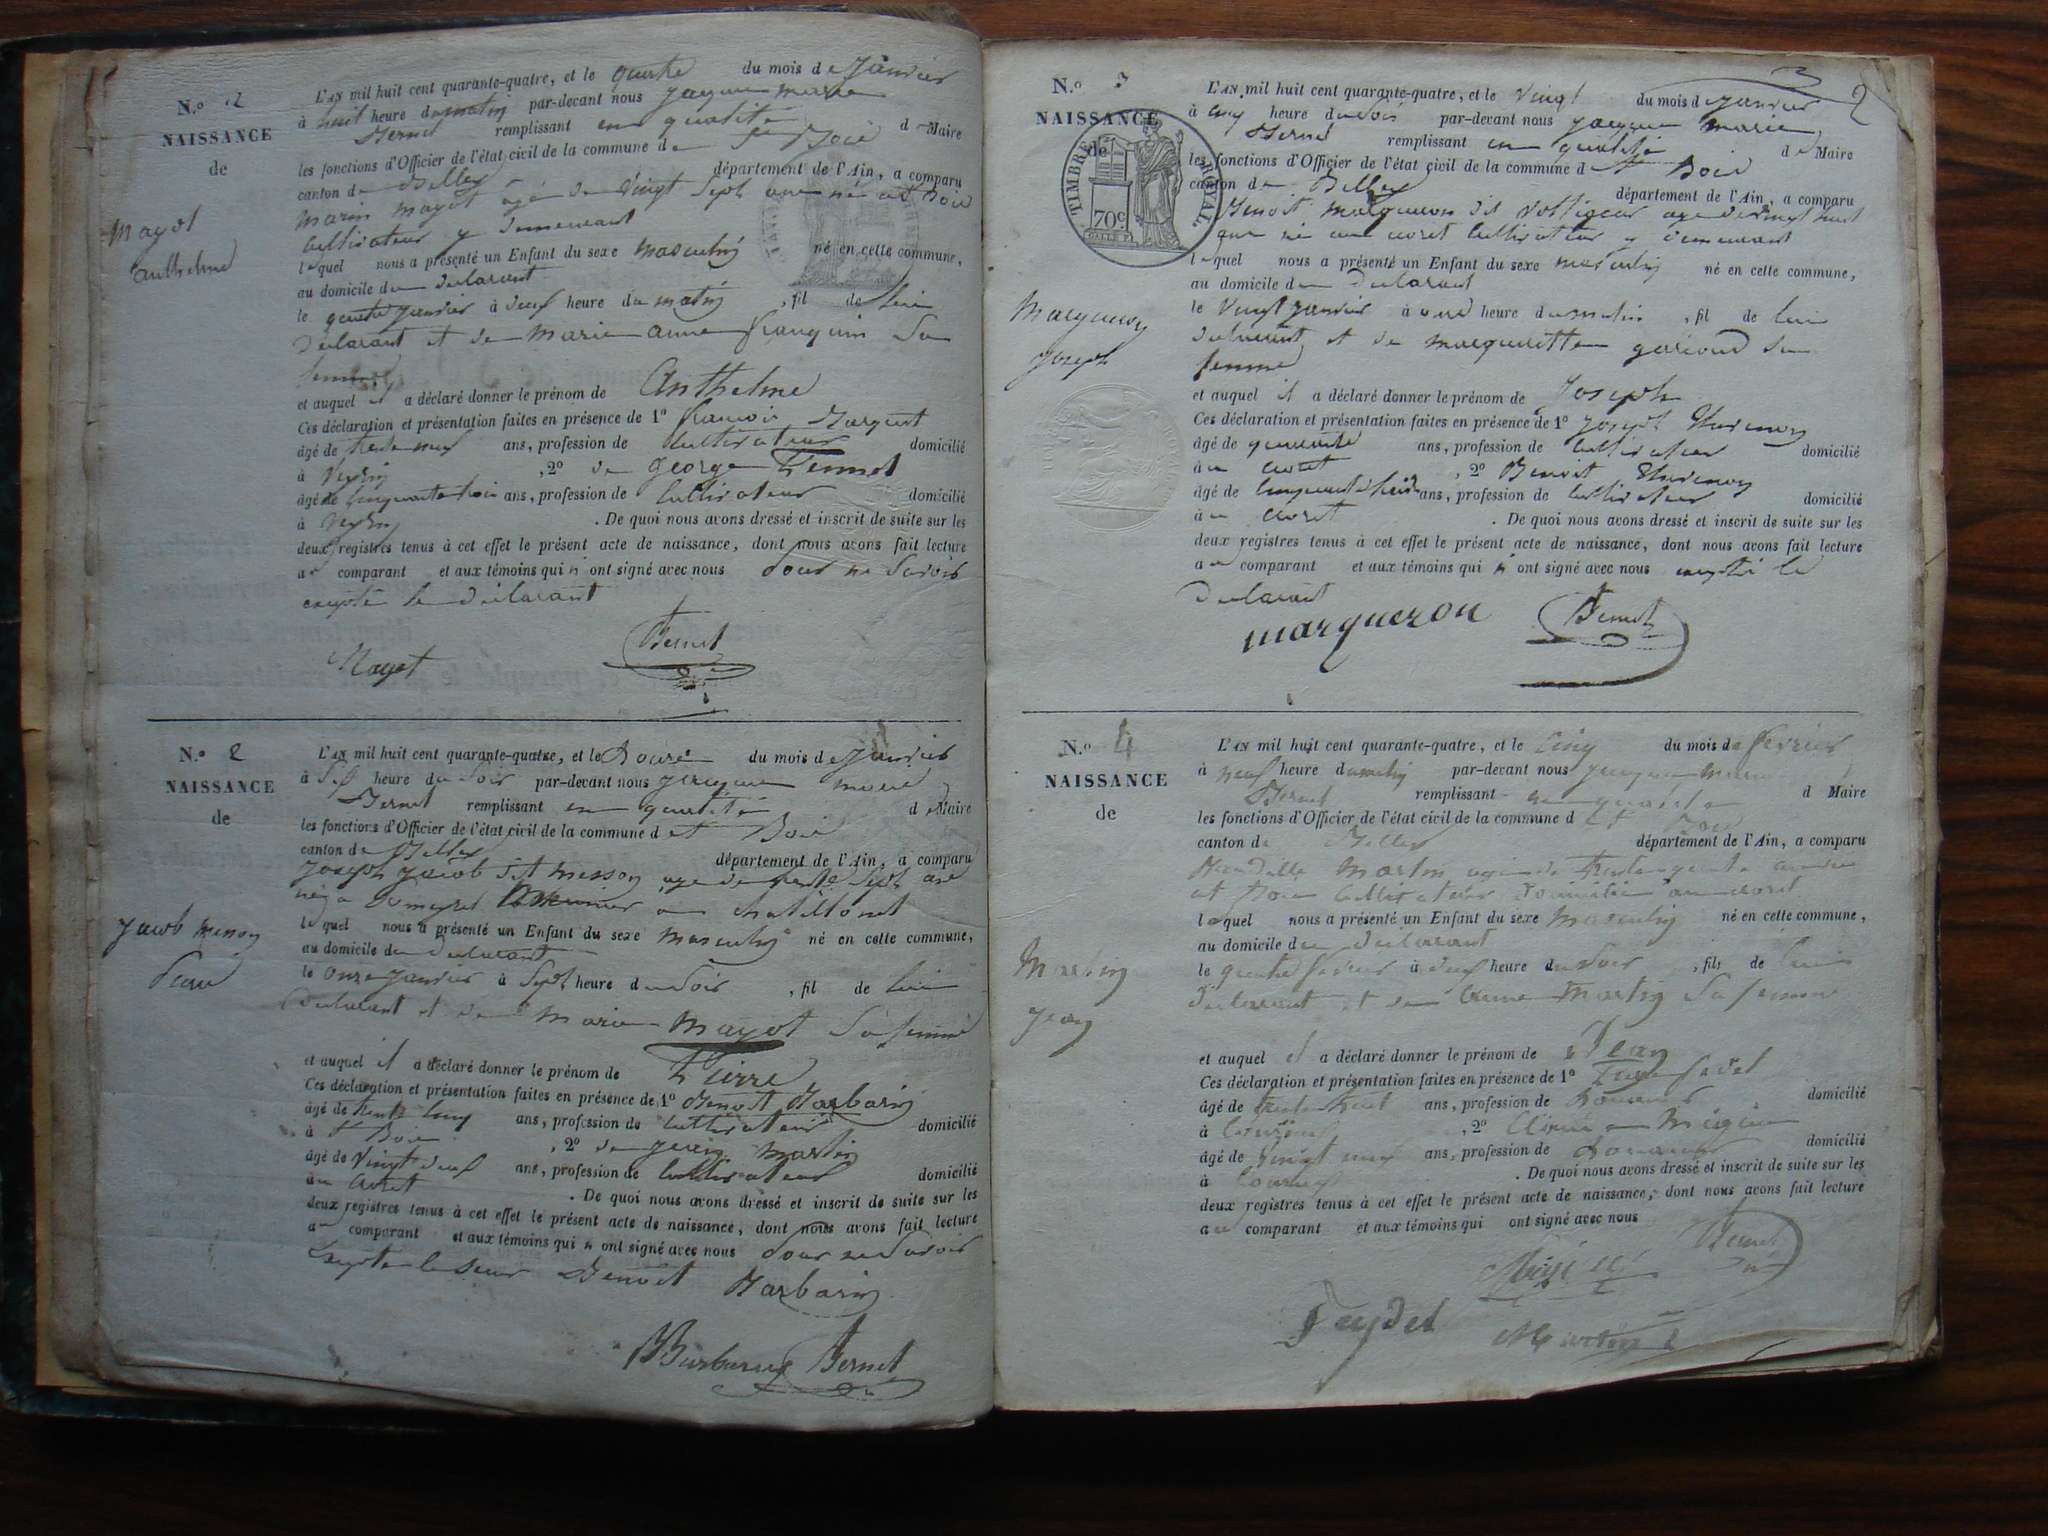 N.o 2
NAISSANCE
de
Mayot
Anthelme
L'AN mil huit cent quarante-quatre, et le quatre du mois de Janvier
à huit heure du matin par-devant nous Jacque Marie
Bernet remplissant en qualité de Maire
les fonctions d'Officier de l'état civil de la commune de St Bois
canton de Belley département de l'Ain, a comparu
Marin Mayot agé de vingt sept ans né a St Bois
cultivateur y demeurant
lequel nous a présenté un Enfant du sexe masculin né en cette commune,
au domicile du declarant
le quatre janvier à deux heure du matin, fil de lui
declarant et de Marie Anne françois Sa
femme
et auquel il a déclaré donner le prénom de Anthelme
Ces déclaration et présentation faites en présence de 1o francois
âgé de trente neuf ans, profession de cultivateur domicilié
à Veyrin, 2o de George
âgé de cinquante trois ans, profession de cultivateur domicilié
à Veyrin. De quoi nous avons dressé et inscrit de suite sur les
deux registres tenus à cet effet le présent acte de naissance, dont nous avons fait lecture
au comparant et aux témoins qui n ont signé avec nous pour ne Savoir
excepté le declarant
Mayot Bernet
N.o 2
NAISSANCE
de
Jacob Messon
Pierre
L'AN mil huit cent quarante-quatre, et le Douze du mois de Janvier
à Six heure du Soir par-devant nous Jacque Marie
Bernet remplissant en qualité de Maire
les fonctions d'Officier de l'état civil de la commune d St Bois
canton de Belley département de l'Ain, a comparu
Joseph Jacob dit Messon age de trente Sept ans
né a a Chatillonet
lequel nous a présenté un Enfant du sexe masculin né en cette commune,
au domicile du declarant
le onze Janvier à Sept heure du Soir, fil de lui
declarant et de Marie Mayot Sa femme
et auquel il a déclaré donner le prénom de Pierre
Ces déclaration et présentation faites en présence de 1o Benoit Barbarin
âgé de trente cinq ans, profession de cultivateur domicilié
à St Bois, 2o de Jean Martin
âgé de vingt deux ans, profession de cultivateur domicilié
au Coret. De quoi nous avons dressé et inscrit de suite sur les
deux registres tenus à cet effet le présent acte de naissance, dont nous avons fait lecture
au comparant et aux témoins qui n ont signé avec nous pour ne Savoir
Excepté le Sieur Benoit Barbarin
Barbarin Bernet
3
2
N.o 3
NAISSANCE
de
TIMBRE ROYAL
70c
Marqueron
Joseph
L'AN mil huit cent quarante-quatre, et le vingt du mois de Janvier
à cinq heure du Soir par-devant nous Jacque Marie
Bernet remplissant en qualité de Maire
les fonctions d'Officier de l'état civil de la commune d St Bois
canton de Belley département de l'Ain, a comparu
Benoit Marqueron dit Voltigeur age de vingt huit
ans né au Coret cultivateur y demeurant
lequel nous a présenté un Enfant du sexe masculin né en cette commune,
au domicile du declarant
le vingt janvier à onze heure du matin, fil de lui
declarant et de Margueritte Sa
femme
et auquel il a déclaré donner le prénom de Joseph
Ces déclaration et présentation faites en présence de 1o Joseph
âgé de quarante ans, profession de cultivateur domicilié
au Coret, 2o Benoit
âgé de ans, profession de cultivateur domicilié
au Coret. De quoi nous avons dressé et inscrit de suite sur les
deux registres tenus à cet effet le présent acte de naissance, dont nous avons fait lecture
au comparant et aux témoins qui n ont signé avec nous excepté le
declarant
marqueron Bernet
N.o 4
NAISSANCE
de
Martin
Jean
L'AN mil huit cent quarante-quatre, et le cinq du mois de fevrier
à neuf heure du matin par-devant nous Jacque Marie
Bernet remplissant en qualité d Maire
les fonctions d'Officier de l'état civil de la commune d St Bois
canton de Belley département de l'Ain, a comparu
Martin age de trente
St Bois cultivateur domicilié au Coret
lequel nous a présenté un Enfant du sexe Masculin né en cette commune,
au domicile du declarant
le quatre fevrier à deux heure du Soir, fils de lui
declarant et de Martin Sa femme
et auquel il a déclaré donner le prénom de Jean
Ces déclaration et présentation faites en présence de 1o
âgé de trente huit ans, profession de Douanier domicilié
à, 2o Claude
âgé de vingt neuf ans, profession de Douanier domicilié
à. De quoi nous avons dressé et inscrit de suite sur les
deux registres tenus à cet effet le présent acte de naissance, dont nous avons fait lecture
au comparant et aux témoins qui ont signé avec nous
Bernet
Feydel Martin